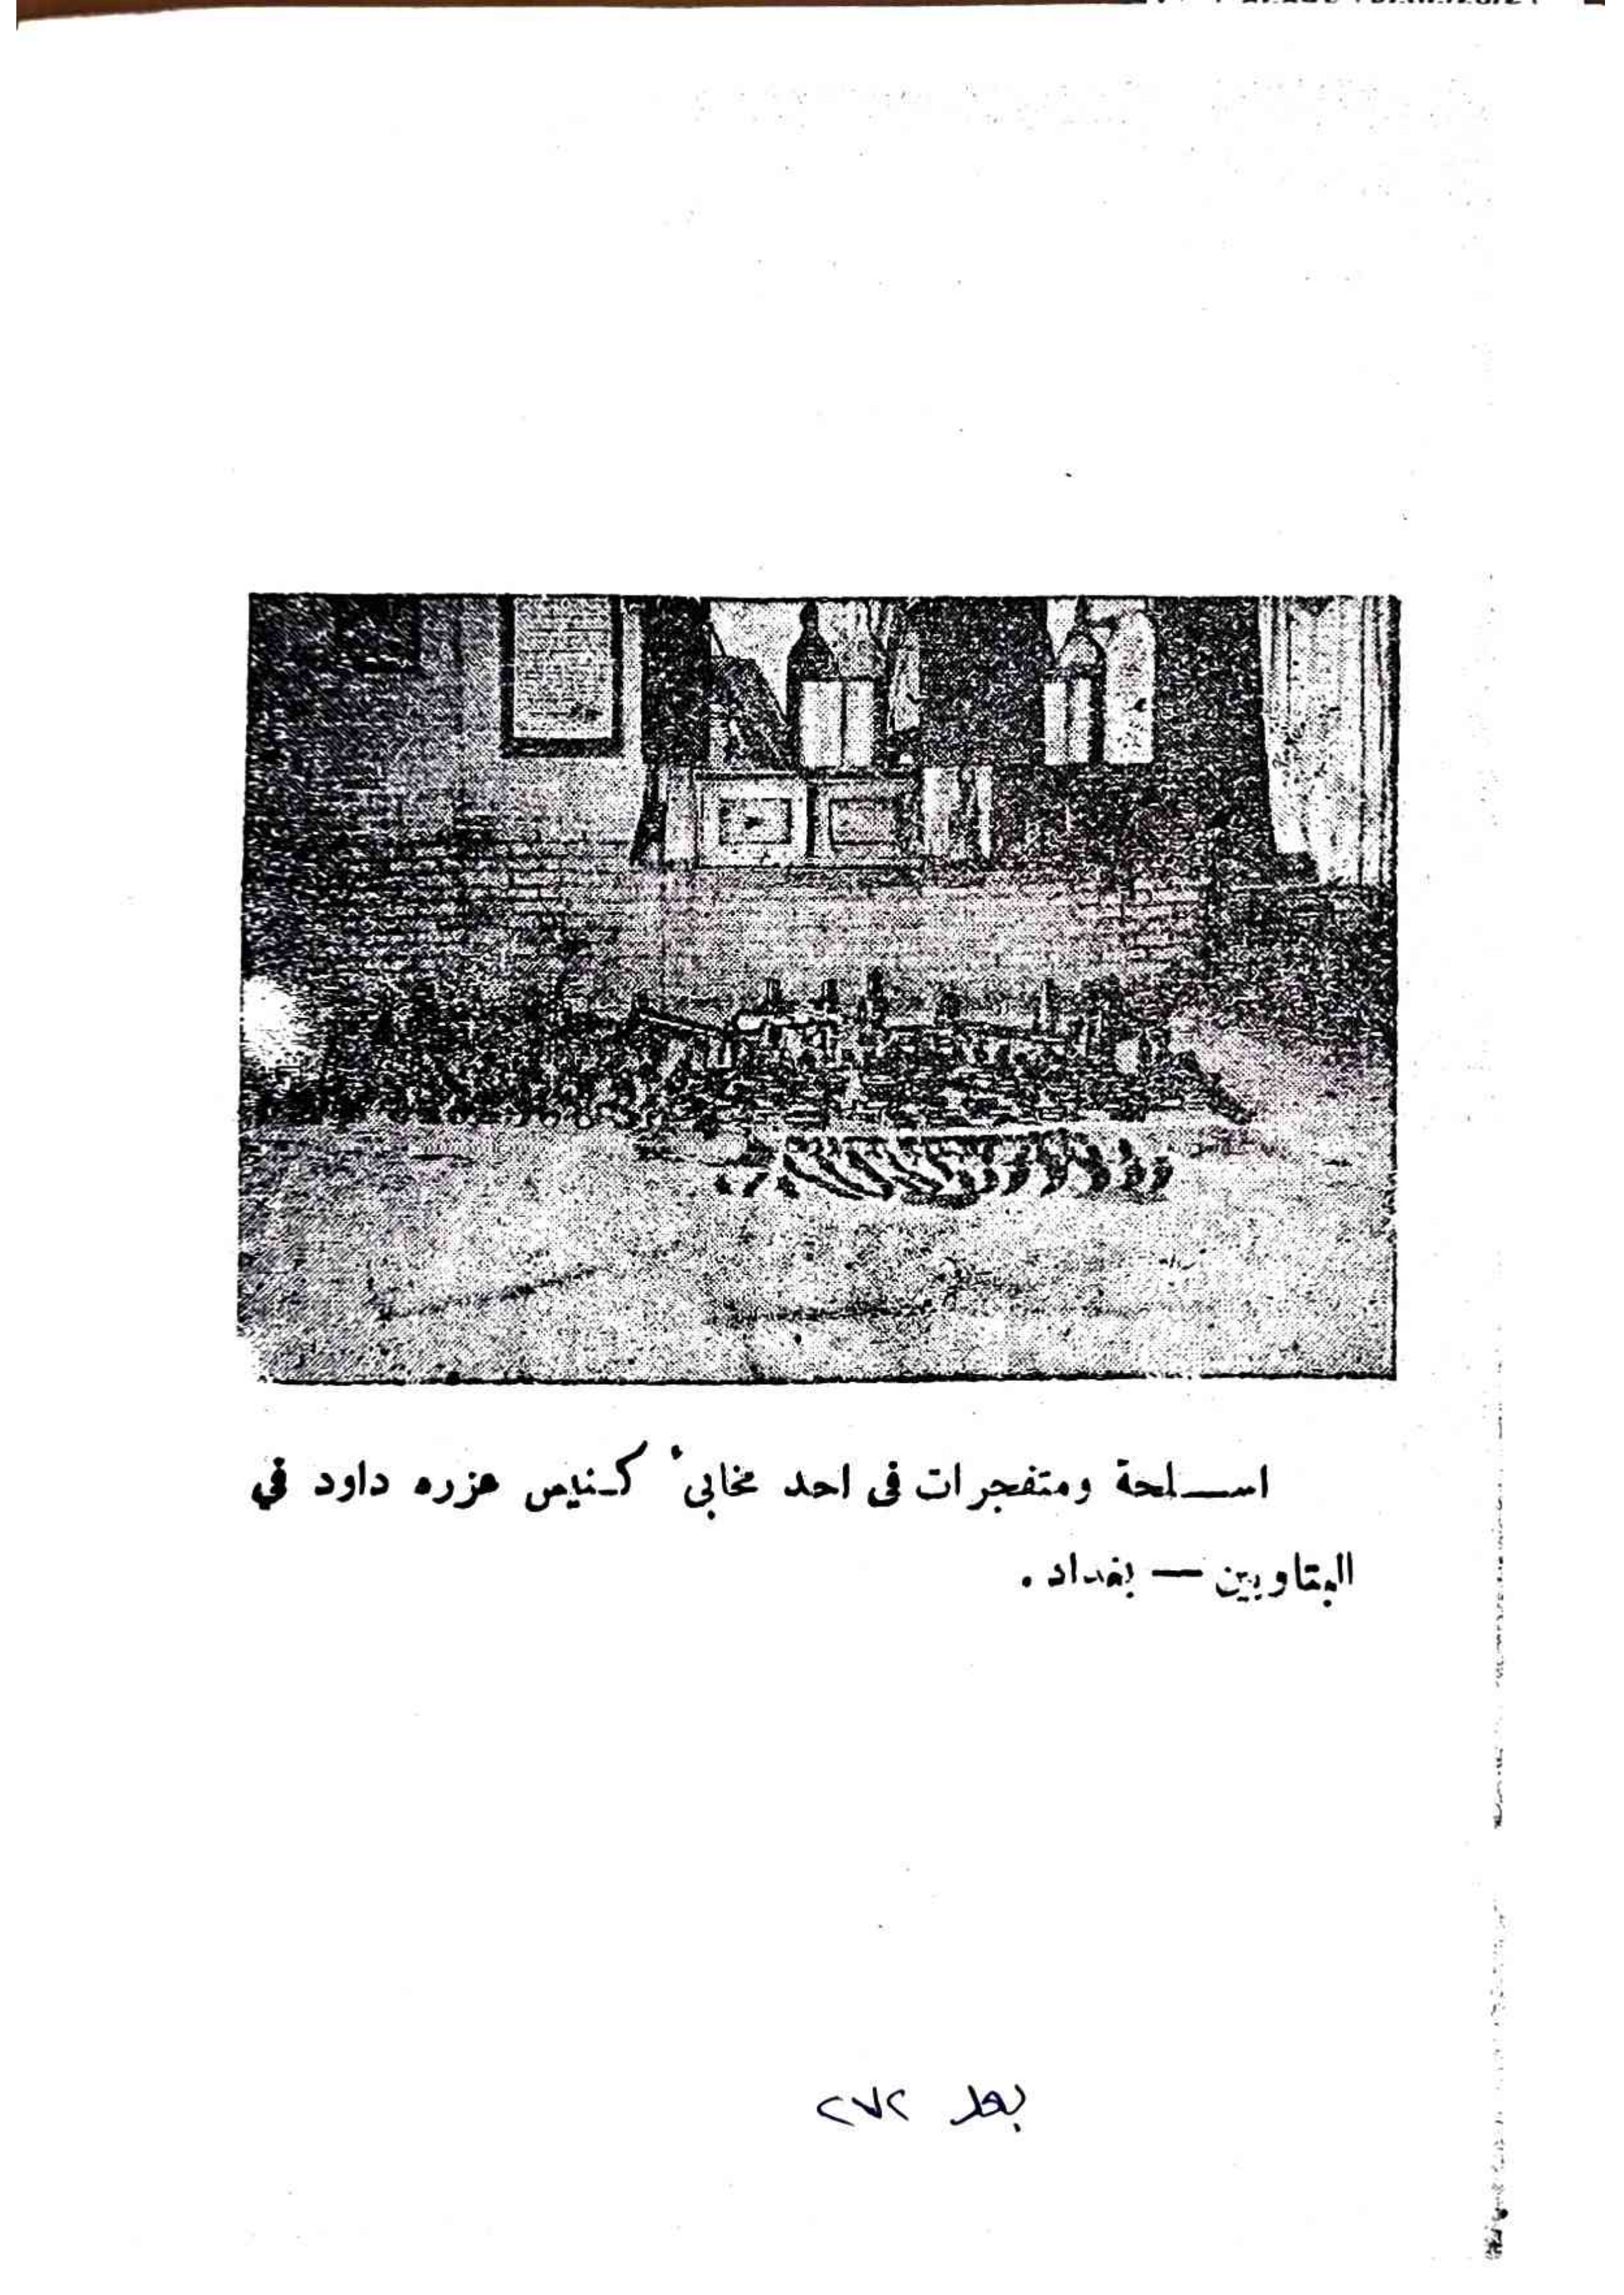 اسلحة ومتفجرات فى احد مخابىء كنيس عزره داود في
البتاويين — بغداد .
بعد ٢٧٢